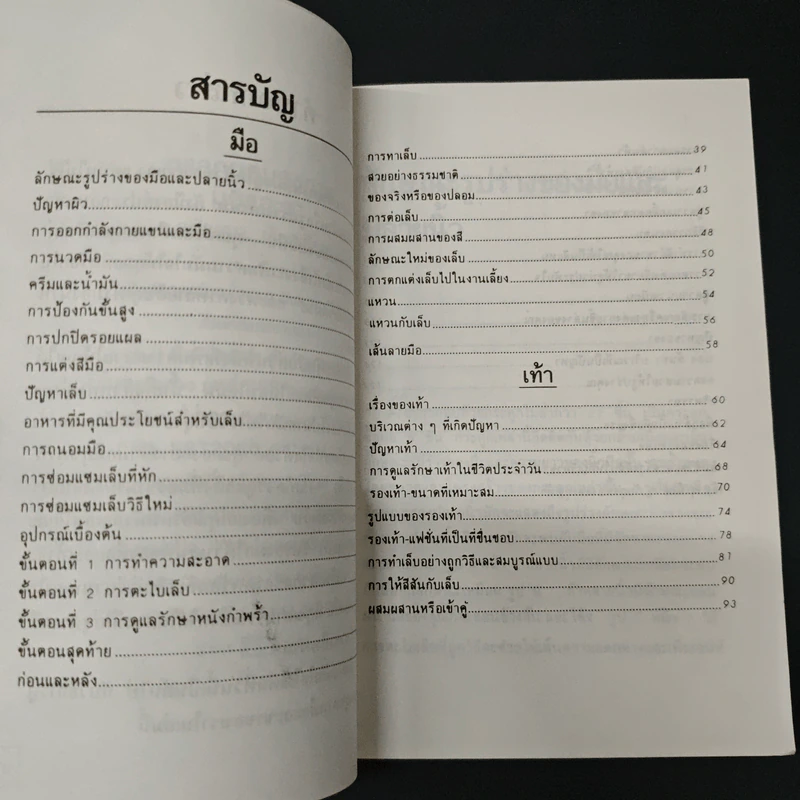 สารบัญ
มือ
ลักษณะรูปร่างของมือและปลายนิ้ว
ปัญหาผิว
การออกกำลังกายแขนและมือ
การนวดมือ
ครีมและน้ำมัน
การป้องกันขั้นสูง
การปกปิดรอยแผล
การแต่งสีมือ
ปัญหาเล็บ
อาหารที่มีคุณประโยชน์สำหรับเล็บ
การถนอมมือ
การซ่อมแซมเล็บที่หัก
การซ่อมแซมเล็บวิธีใหม่
อุปกรณ์เบื้องต้น
ขั้นตอนที่ 1 การทำความสะอาด
ขั้นตอนที่ 2 การตะไบเล็บ
ขั้นตอนที่ 3 การดูแลรักษาหนังกำพร้า
ขั้นตอนสุดท้าย
ก่อนและหลัง
การทาเล็บ 39
สวยอย่างธรรมชาติ 41
ของจริงหรือของปลอม 43
การต่อเล็บ 45
การผสมผสานของสี 48
ลักษณะใหม่ของเล็บ 50
การตกแต่งเล็บไปในงานเลี้ยง 52
แหวน 54
แหวนกับเล็บ 56
เส้นลายมือ 58
เท้า
เรื่องของเท้า 60
บริเวณต่าง ๆ ที่เกิดปัญหา 62
ปัญหาเท้า 64
การดูแลรักษาเท้าในชีวิตประจำวัน 68
รองเท้า-ขนาดที่เหมาะสม 70
รูปแบบของรองเท้า 74
รองเท้า-แฟชั่นที่เป็นที่ชื่นชอบ 78
การทำเล็บอย่างถูกวิธีและสมบูรณ์แบบ 81
การให้สีสันกับเล็บ 90
ผสมผสานหรือเข้าคู่ 93